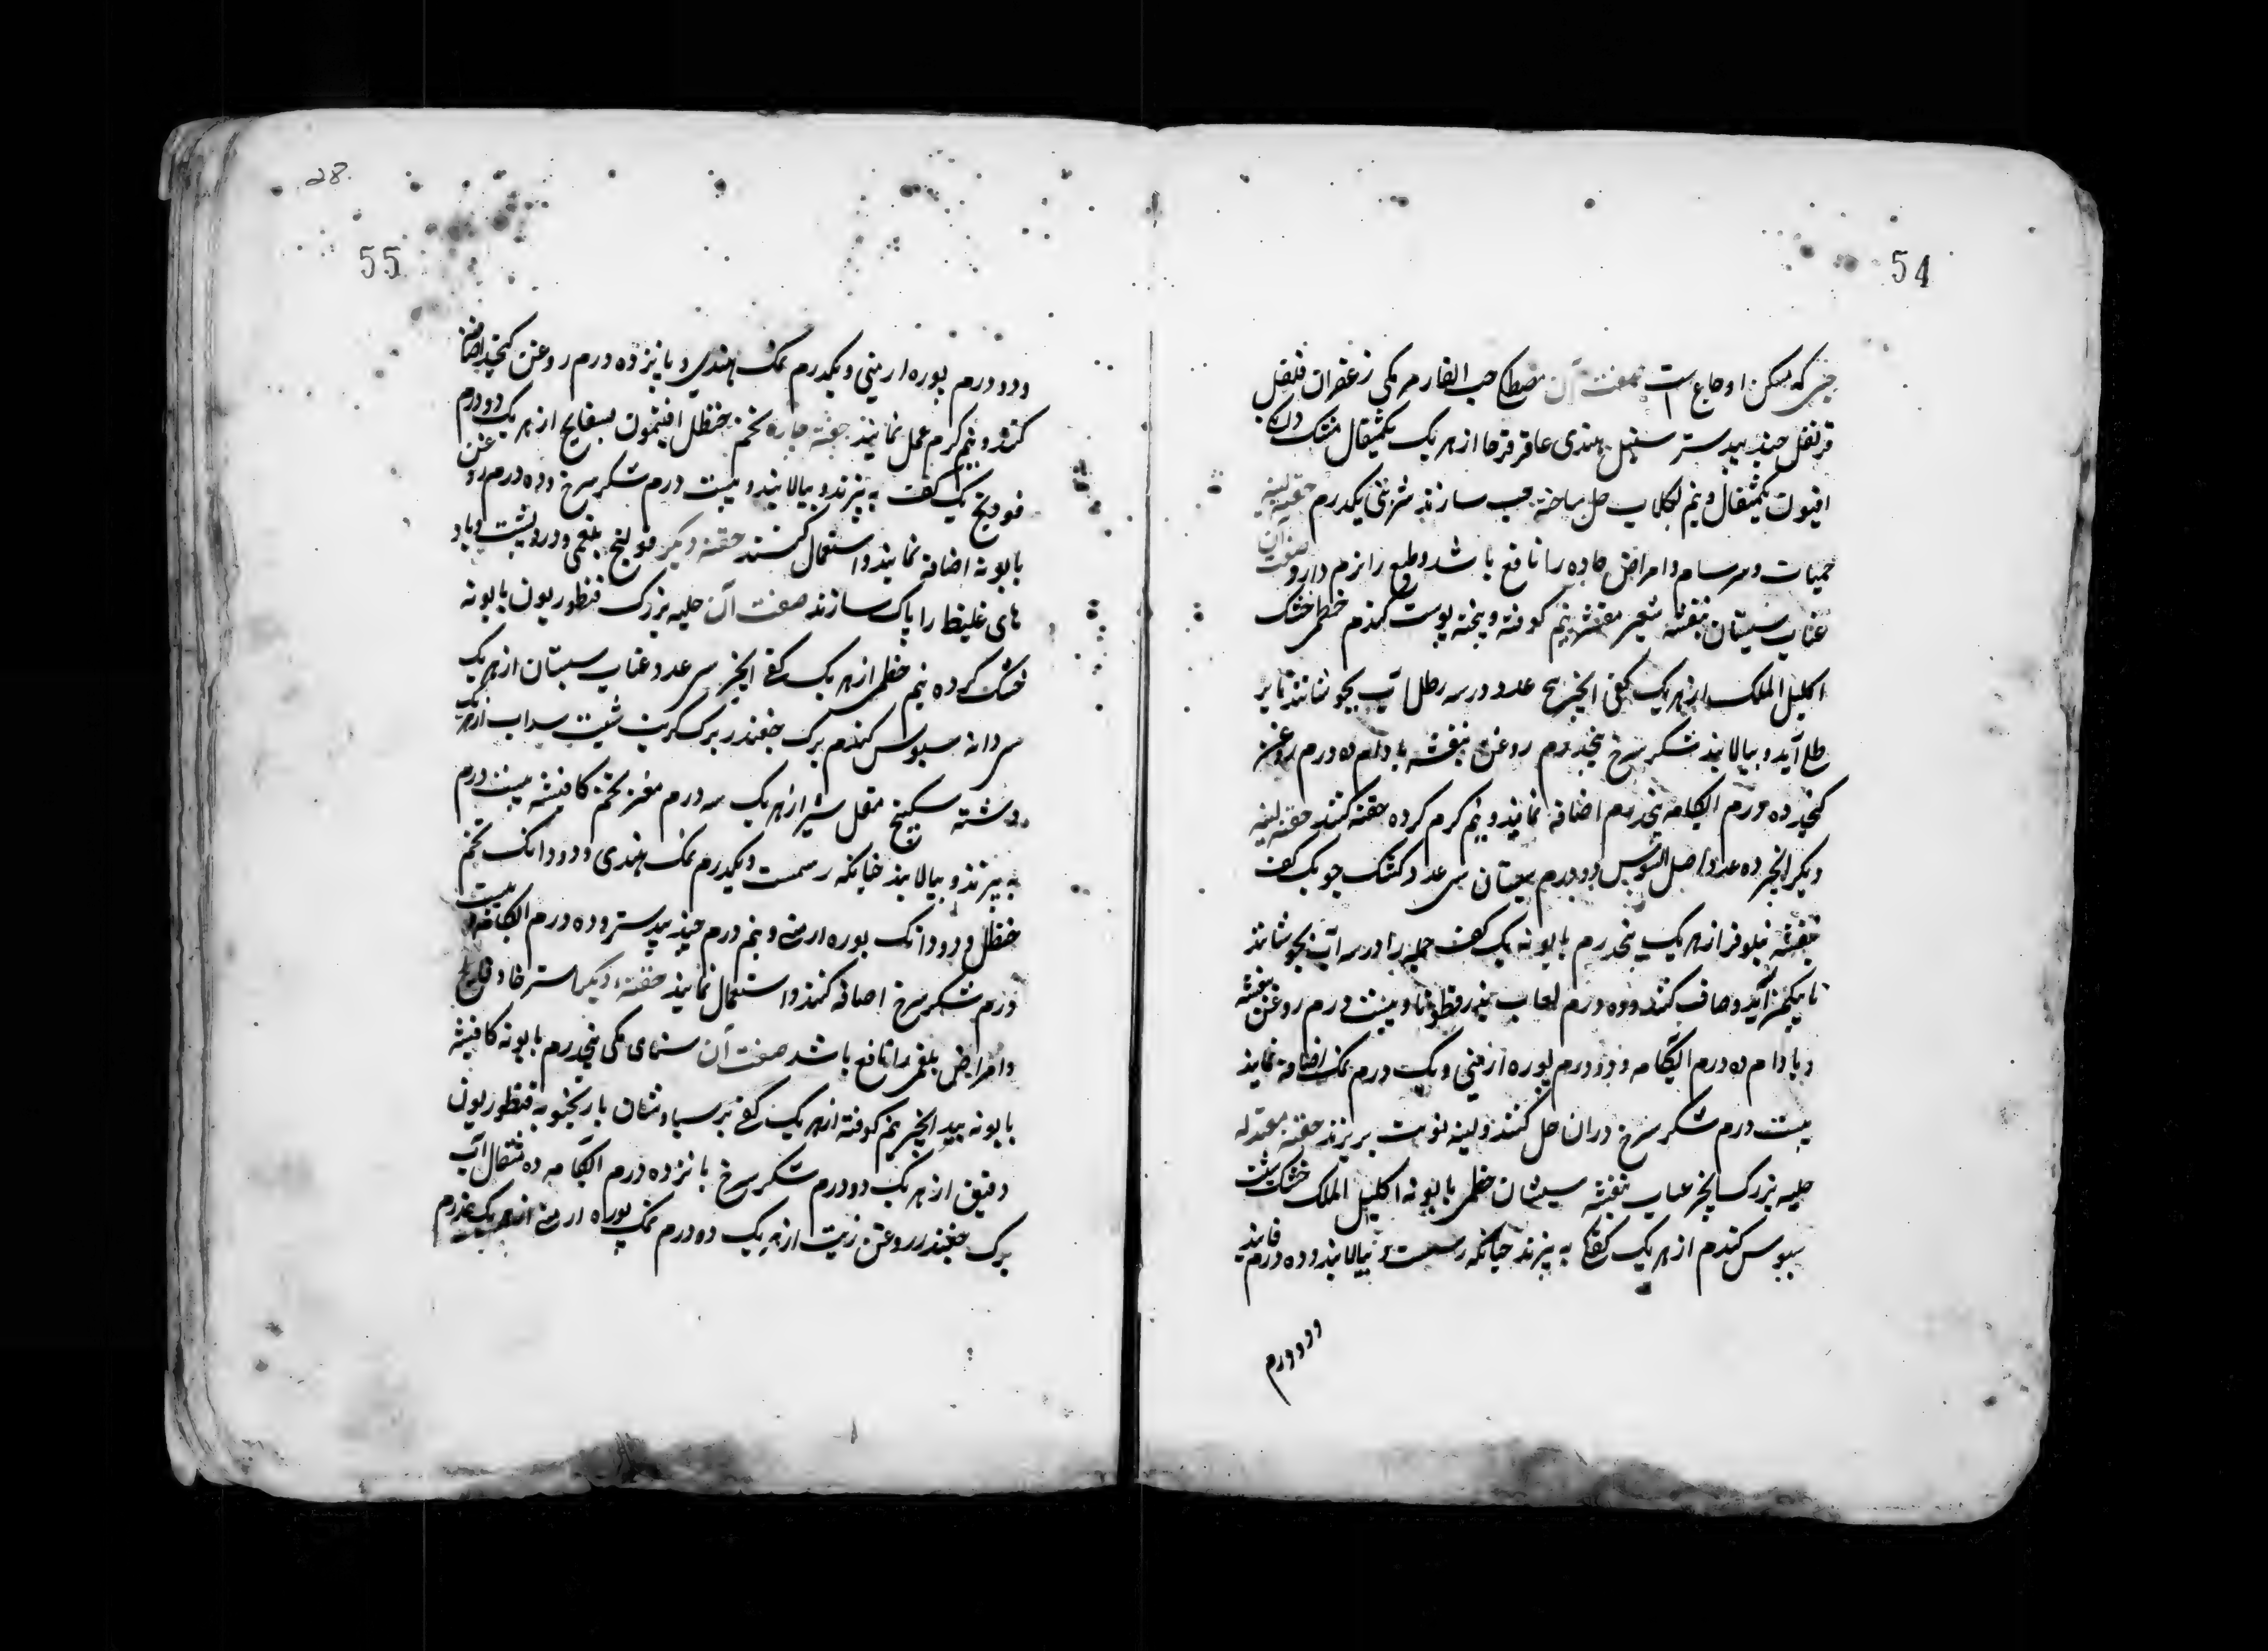 54
حبی که مسکن اوجاع است صفت آن مصطکی حب الغار مر مکی زعفران فلفل
قرنفل جند بیدستر سنبل هندی عاقرقرحا از هر یک یکمثقال مشک دانکی
افیون یکمثقال و نیم بگلاب حل ساخته حب سازند شربتی یکدرم حقنه لینه
حمیات و سرسام و امراض حاده را نافع باشد و طبع را نرم دارد صفت آن
عناب سپستان بنفشه شعیر مقشر نیم کوفته و پخته پوست گندم خطمی خشک
اکلیل الملک از هر یک کفی انجیر پنج عدد در سه رطل آب بجوشانند تا بر
طل آید و بپالایند شکر سرخ پنجدرم روغن بنفشه بادام ده درم روغن
کنجد ده درم آبکامه پنجدرم اضافه نمایند و نیم گرم کرده حقنه کنند حقنه لینه
دیگر انجیر ده عدد اصل السوس دو درم سپستان سی عدد کشک جو یک کف
بنفشه نیلوفر از هر یک پنجدرم بابونه یک کف جمله را در سه آب بجوشانند
تا بیکمن آید و صاف کنند و ده درم لعاب بزر قطونا و بیست درم روغن بنفشه
و بادام ده درم آبکامه و دو درم بوره ارمنی و یک درم نمک اضافه نمایند
بیست درم شکر سرخ دران حل کنند و لینه نوبت بریزند حقنه معتدله
حلبه بزرک انجیر عناب بنفشه سپستان خطمی بابونه اکلیل الملک خشک شبت
سبوس گندم از هر یک کفی به پزند چنانکه رسمست و بپالایند و ده درم فانید
و دو درم
28
55
و دو درم بوره ارمنی و یکدرم نمک هندی و پانزده درم روغن کنجد اضافه
کنند و نیم گرم عمل نمایند حقنه حاره تخم حنظل افتیمون بسفایج از هر یک دو درم
فودنج یک کف به پزند و بپالایند و بیست درم شکر سرخ و ده درم روغن
بابونه اضافه نمایند و استعمال کنند حقنه دیگر قولنج بلغمی و درد پشت و باد
های غلیظ را پاک سازند صفت آن حلبه بزرک قنطوریون بابونه
خشک کرده نیم خطمی از هر یک کفی انجیر سی عدد عناب سپستان از هر یک
سی دانه سبوس گندم برک چغندر برک کرنب شبت سداب از هر یک
دشته سکبینج مقل شیر از هر یک سه درم مغز تخم کافیشه بیست درم
به پزند و بپالایند چنانکه رسمست و یکدرم نمک هندی و دو دانک تخم
حنظل و دو دانک بوره ارمنی و نیم درم جند بیدستر و ده درم آبکامه و بیست
درم شکر سرخ اضافه کنند و استعمال نمایند حقنه دیگر استرخا و فالج
و امراض بلغمی را نافع باشد صفت آن سنای مکی پنجدرم بابونه کافیشه
بابونه بید انجیر نیم کوفته از هر یک کفی پر سیاوشان بادرنجبویه قنطوریون
دقیق از هر یک دو درم شکر سرخ پانزده درم آبکامه ده مثقال آب
برک چغندر روغن زیت از هر یک ده درم نمک بوره ارمنی از هر یک